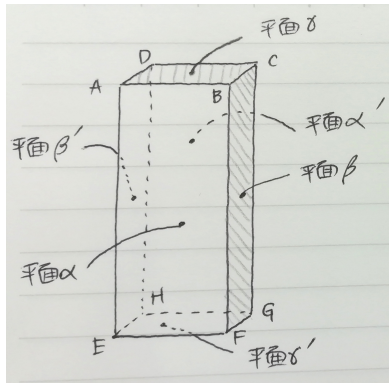 平面γ
D
C
A
B
平面α'
平面β'
平面β
平面α
H
G
E
F
平面γ'